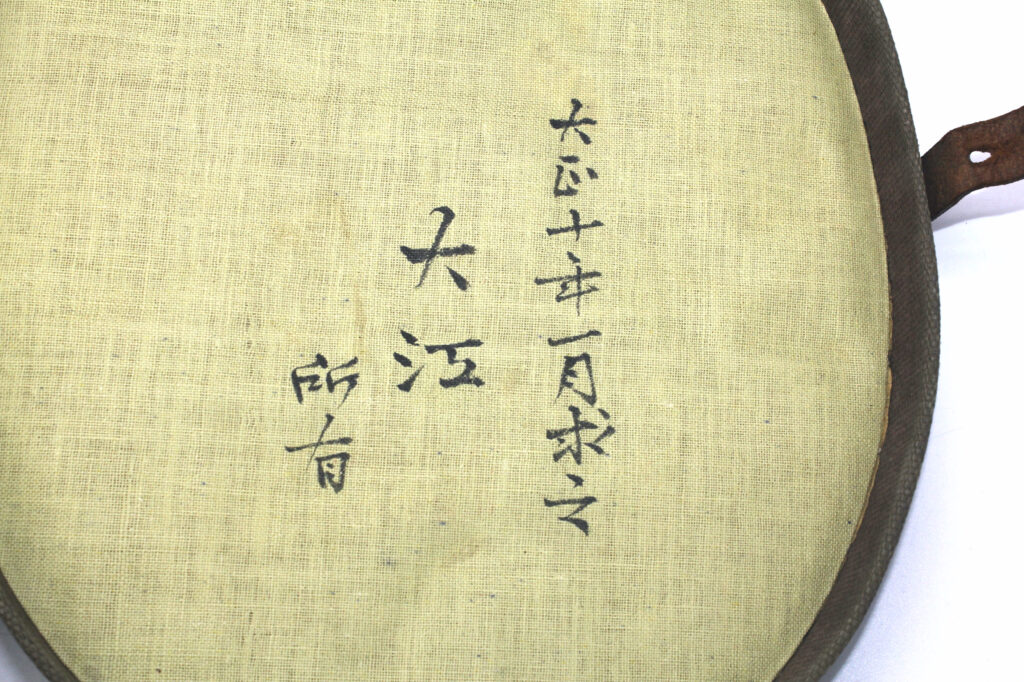 大正十年一月求之
大江
所有